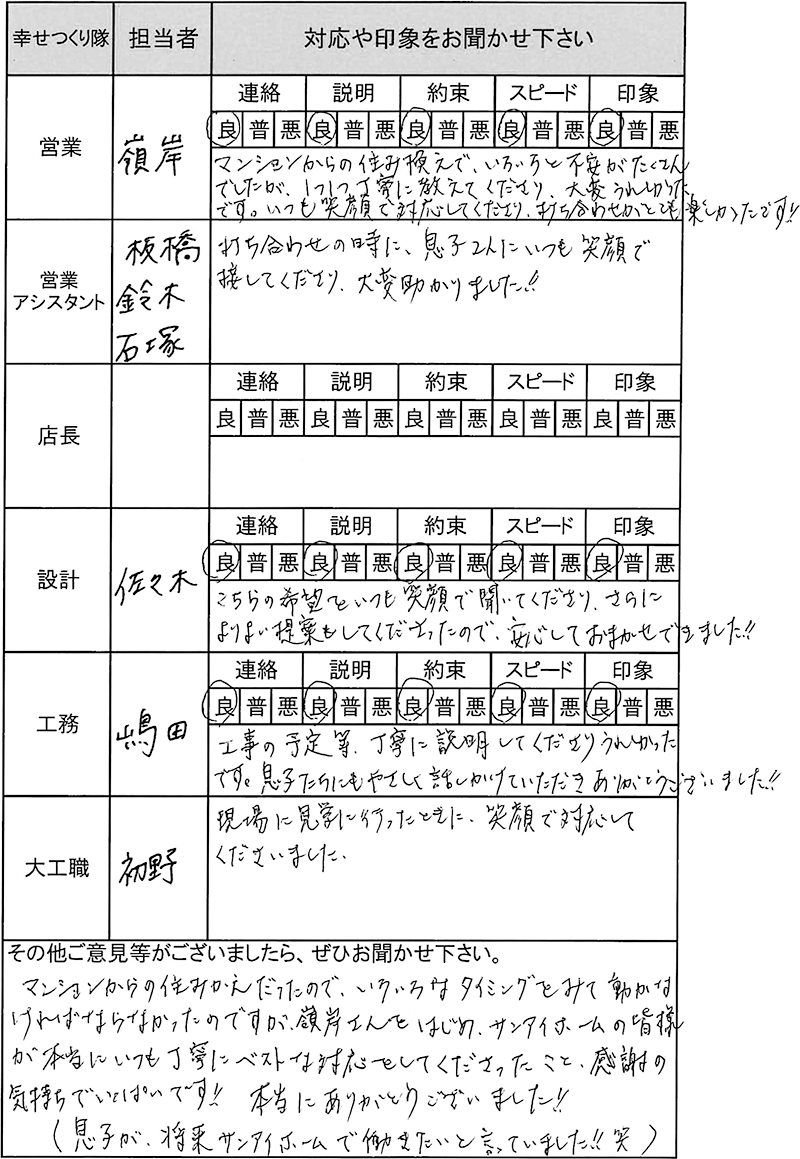 幸せつくり隊 担当者 対応や印象をお聞かせ下さい
連絡 説明 約束 スピード 印象
良 普 悪 良 普 悪 良 普 悪 良 普 悪 良 普 悪
営業 嶺岸
マンションからの住み換えで、いろいろと不安がたくさん
でしたが、1つ1つ丁寧に教えてくださり、大変うれしかった
です。いつも笑顔で対応してくださり、打ち合わせがとても楽しかったです!!
営業
アシスタント
板橋
鈴木
石塚
打ち合わせの時に、息子2人にいつも笑顔で
接してくださり、大変助かりました!!
連絡 説明 約束 スピード 印象
良 普 悪 良 普 悪 良 普 悪 良 普 悪 良 普 悪
店長
連絡 説明 約束 スピード 印象
良 普 悪 良 普 悪 良 普 悪 良 普 悪 良 普 悪
設計 佐々木
こちらの希望をいつも笑顔で聞いてくださり、さらに
よりよい提案もしてくださったので、安心しておまかせできました!!
連絡 説明 約束 スピード 印象
良 普 悪 良 普 悪 良 普 悪 良 普 悪 良 普 悪
工務 嶋田
工事の予定等、丁寧に説明してくださりうれしかった
です。息子たちにもやさしく話しかけていただきありがとうございました!!
大工職 初野
現場に見学に行ったときに、笑顔で対応して
くださいました。
その他ご意見等がございましたら、ぜひお聞かせ下さい。
マンションからの住みかえだったので、いろいろなタイミングをみて動かな
ければならなかったのですが、嶺岸さんをはじめ、サンアイホームの皆様
が本当にいつも丁寧にベストな対応をしてくださったこと、感謝の
気持ちでいっぱいです!! 本当にありがとうございました!!
(息子が、将来サンアイホームで働きたいと言っていました!!笑)